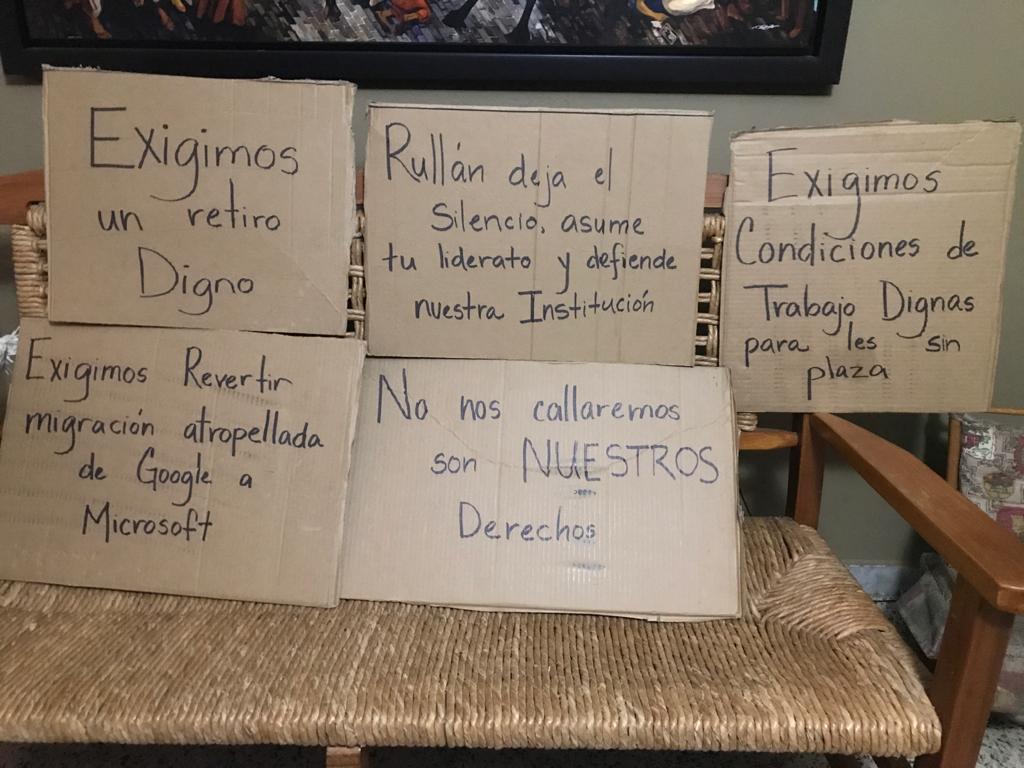 Exigimos
un retiro
Digno
Rullán deja el
Silencio, asume
tu liderato y defiende
nuestra Institución
Exigimos
Condiciones de
Trabajo Dignas
para les sin
plaza
Exigimos Revertir
migración atropellada
de Google a
Microsoft
No nos callaremos
son NUESTROS
Derechos